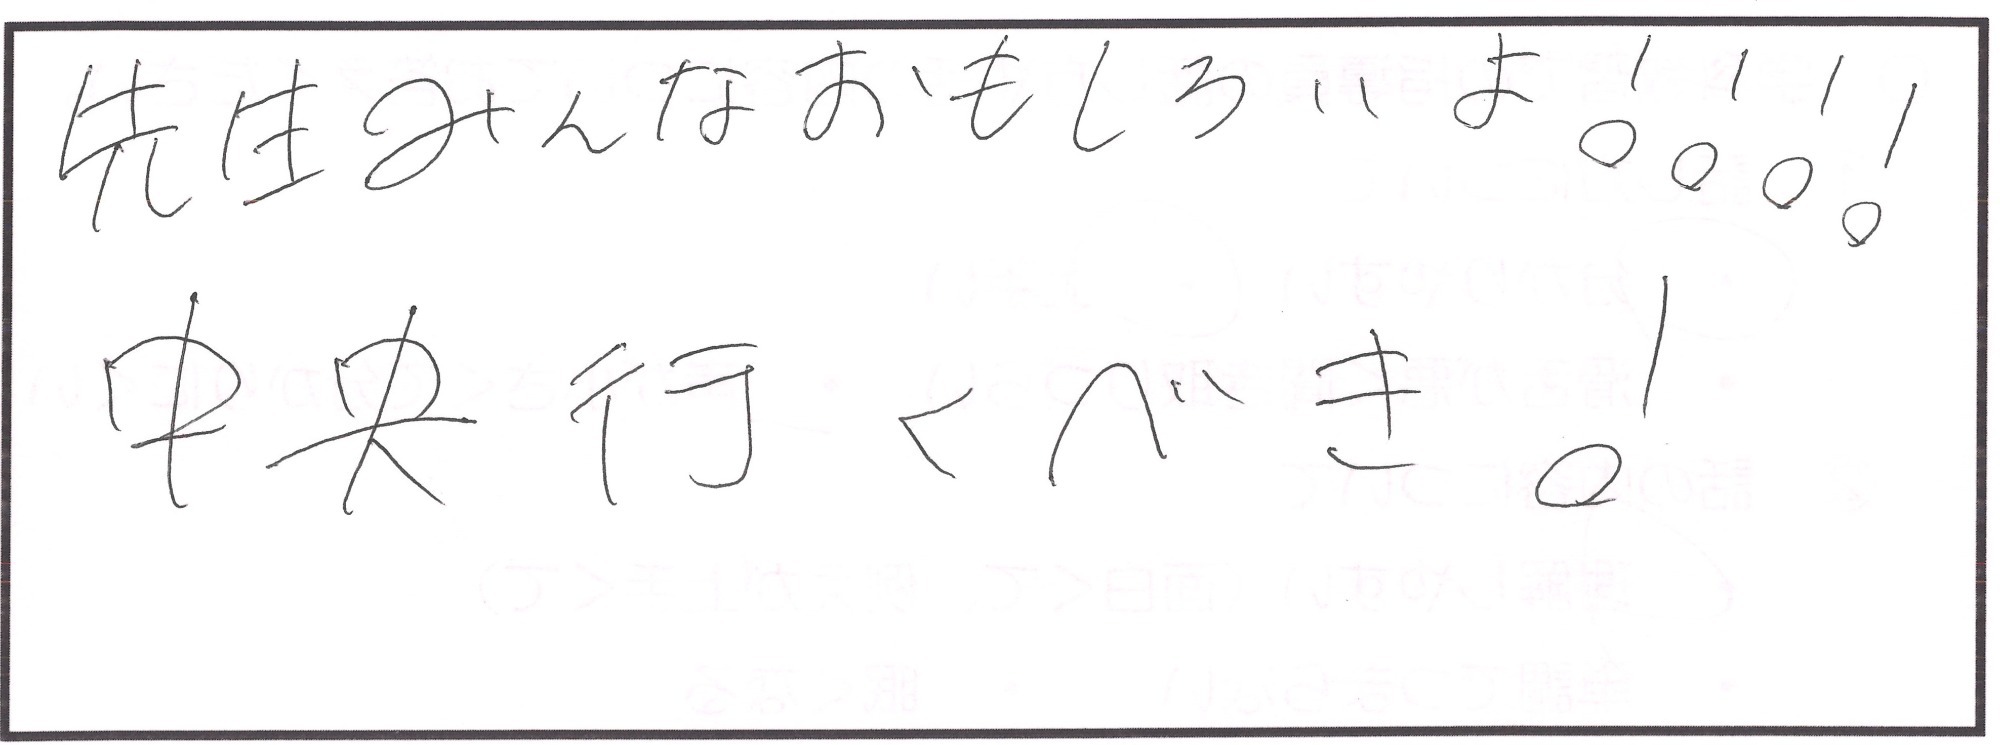 先生みんなおもしろいよ!!!!
中央行くべき!